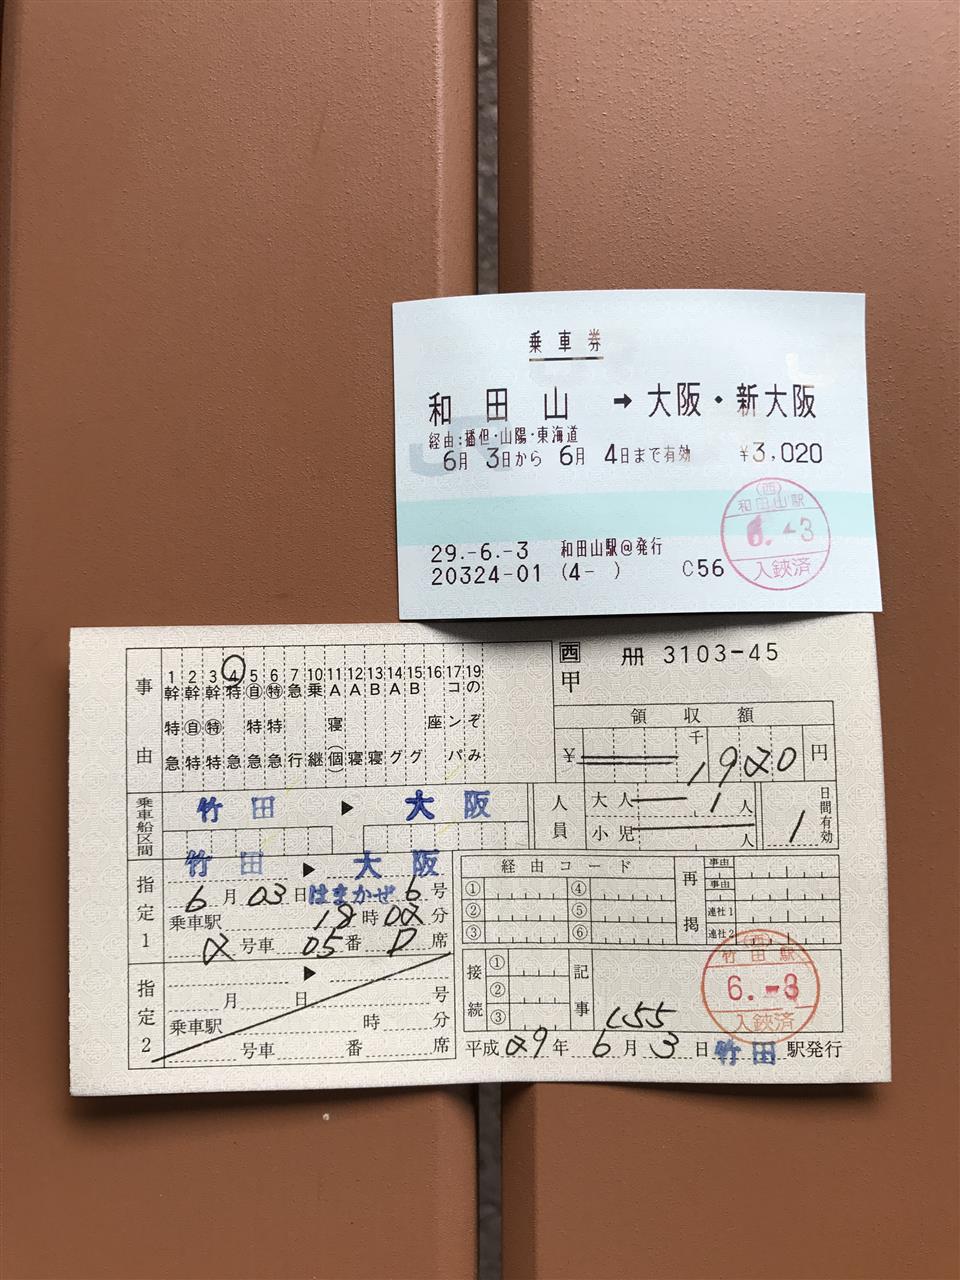 乗車券
和田山 → 大阪・新大阪
経由:播但・山陽・東海道
6月 3日から 6月 4日まで有効 ¥3,020
29.-6.-3 和田山駅@発行
20324-01 (4- ) C56
(西)
和田山駅
6.-3
入鋏済
西 冊 3103-45
甲
事由
1 幹特急
2 幹自特
3 幹特特
4 特急
5 自特急
6 特特急
7 急行
10 乗継
11 A寝(個)
12 A寝
13 B寝
14 Aグ
15 Bグ
16 座
17 コンパ
19 のぞみ
領収額
¥ 千 1920 円
乗車船区間
竹田 ▶ 大阪
人員
大人 1 人
小児 人
1 日間有効
指定1
竹田 ▶ 大阪
6月03日 はまかぜ 6号
乗車駅 18時02分
2号車 05番 D席
指定2
▶
月 日 号
乗車駅 時 分
号車 番 席
経由コード
① ④
② ⑤
③ ⑥
再掲
事由
事由
連社1
連社2
接続
①
②
③
記事
C55
(西)
竹田駅
6.-3
入鋏済
平成29年6月3日 竹田駅発行